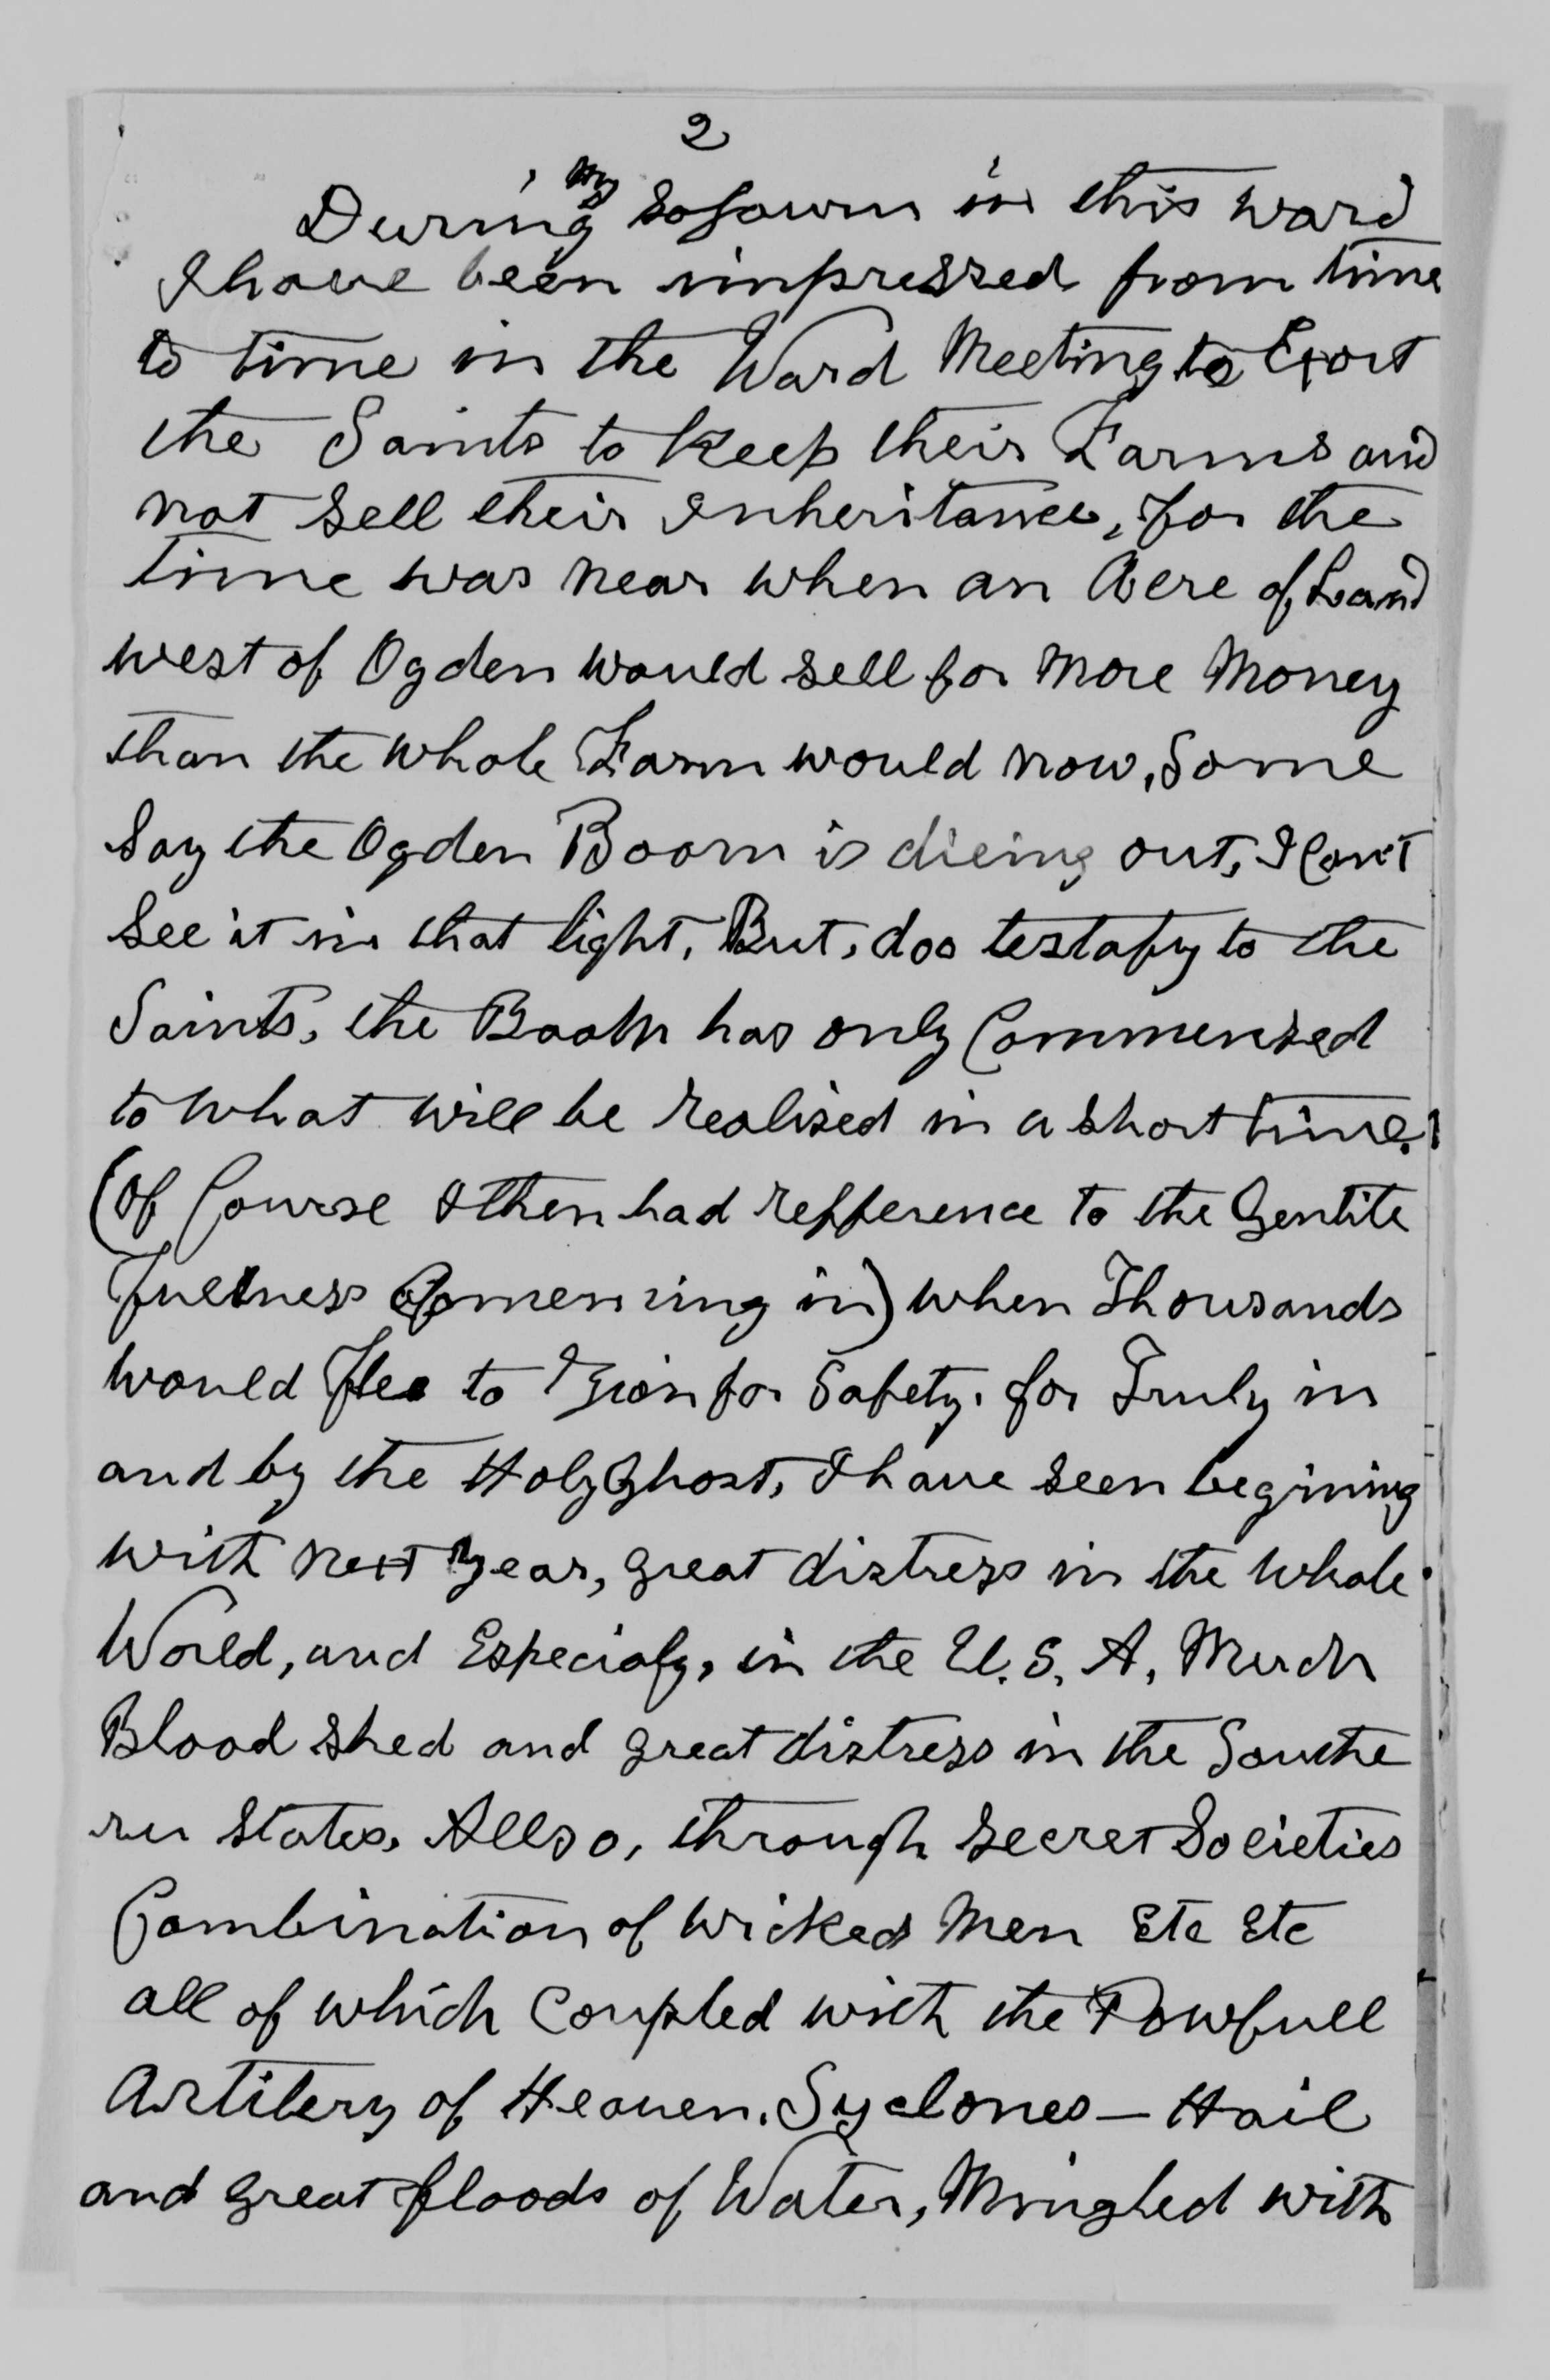 2
During my Sojourn in this ward
I have been impressed from time
to time in the Ward Meeting to Exort
the Saints to Keep their Farms and
not Sell their Inheritance, for the
time was near when an Acre of Land
west of Ogden would sell for More Money
than the whole Farm would now, Some
Say the Ogden Boom is dieing out, I Can't
See it in that light, But, doo testafy to the
Saints, the Boom has only Commensed
to what will be realised in a short time.
(Of Course I then had refference to the Gentite
fullness Comencing in) when Thousands
would flee to Zion for Safety. for Truly in
and by the Holy Ghost, I have seen begining
with next year, great distress in the whole
World, and Especialy, in the U.S.A, Much
Blood shed and great distress in the Southe
rn States, Allso, through Secret Societies
Combination of wicked Men Etc Etc
all of which Coupled with the Powfull
Artilery of Heaven. Syclones – Hail
and great floods of Water, Mingled with